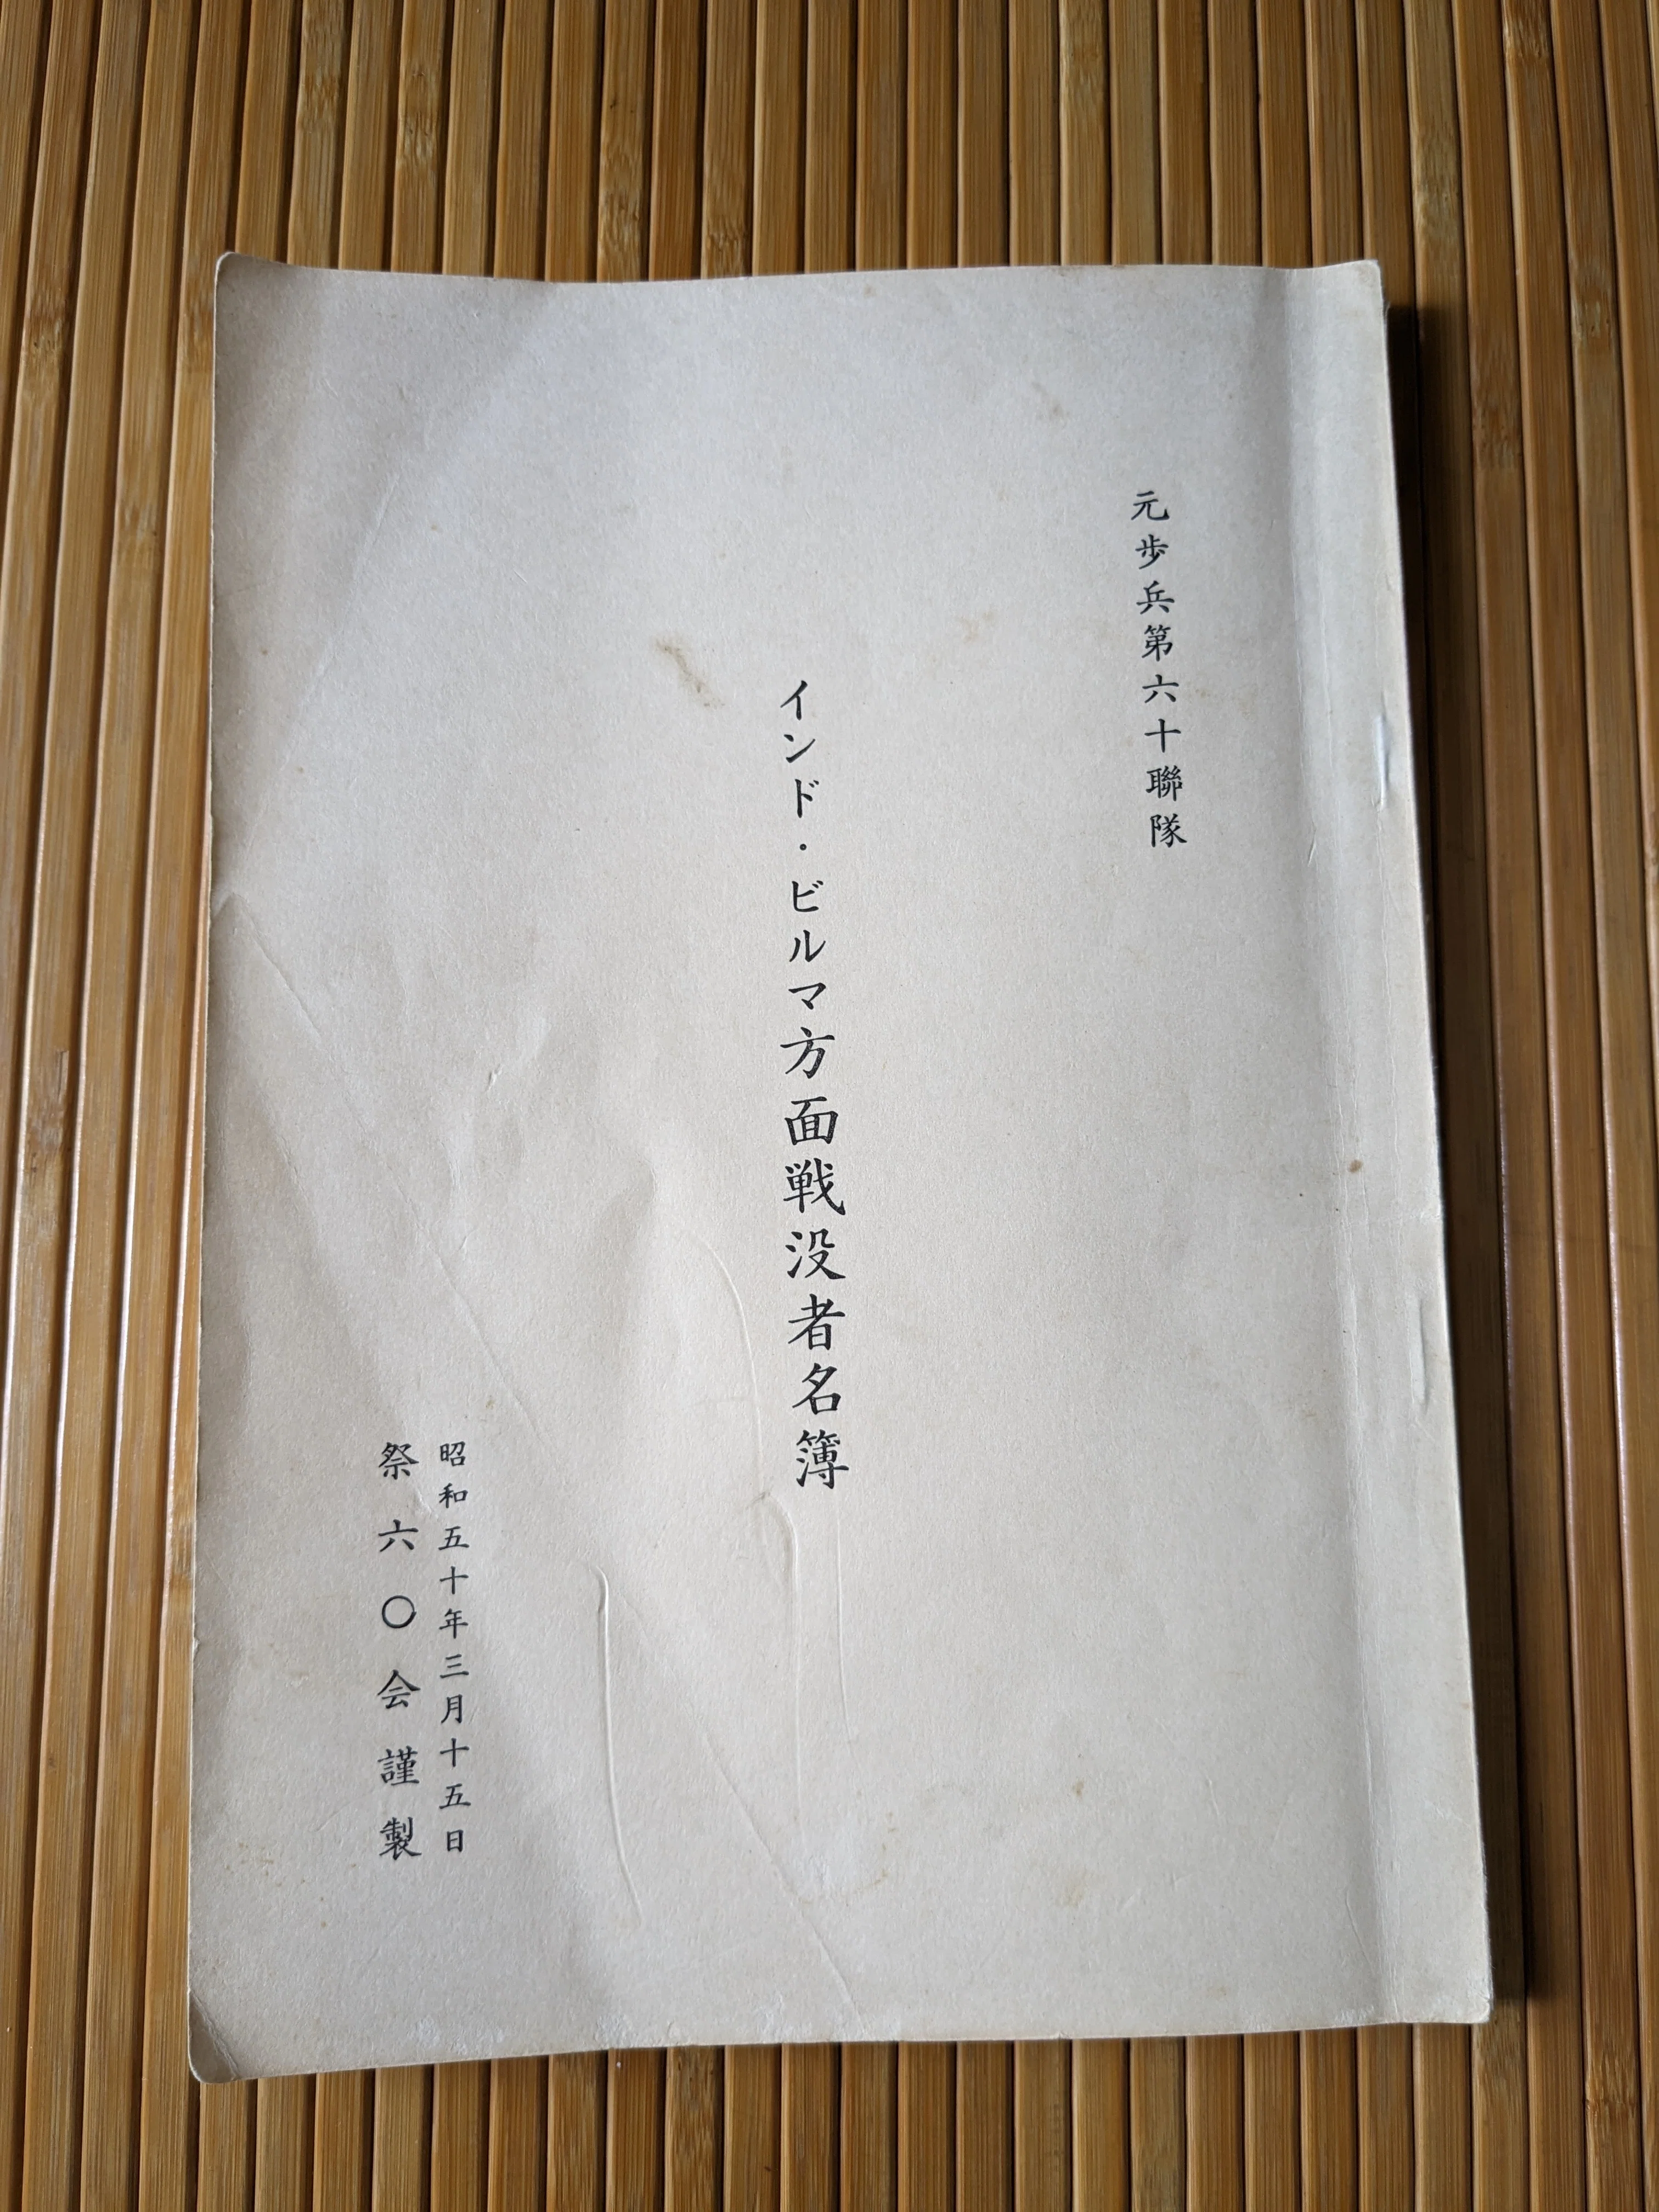 元歩兵第六十聯隊
インド・ビルマ方面戦没者名簿
昭和五十年三月十五日
祭六〇会謹製